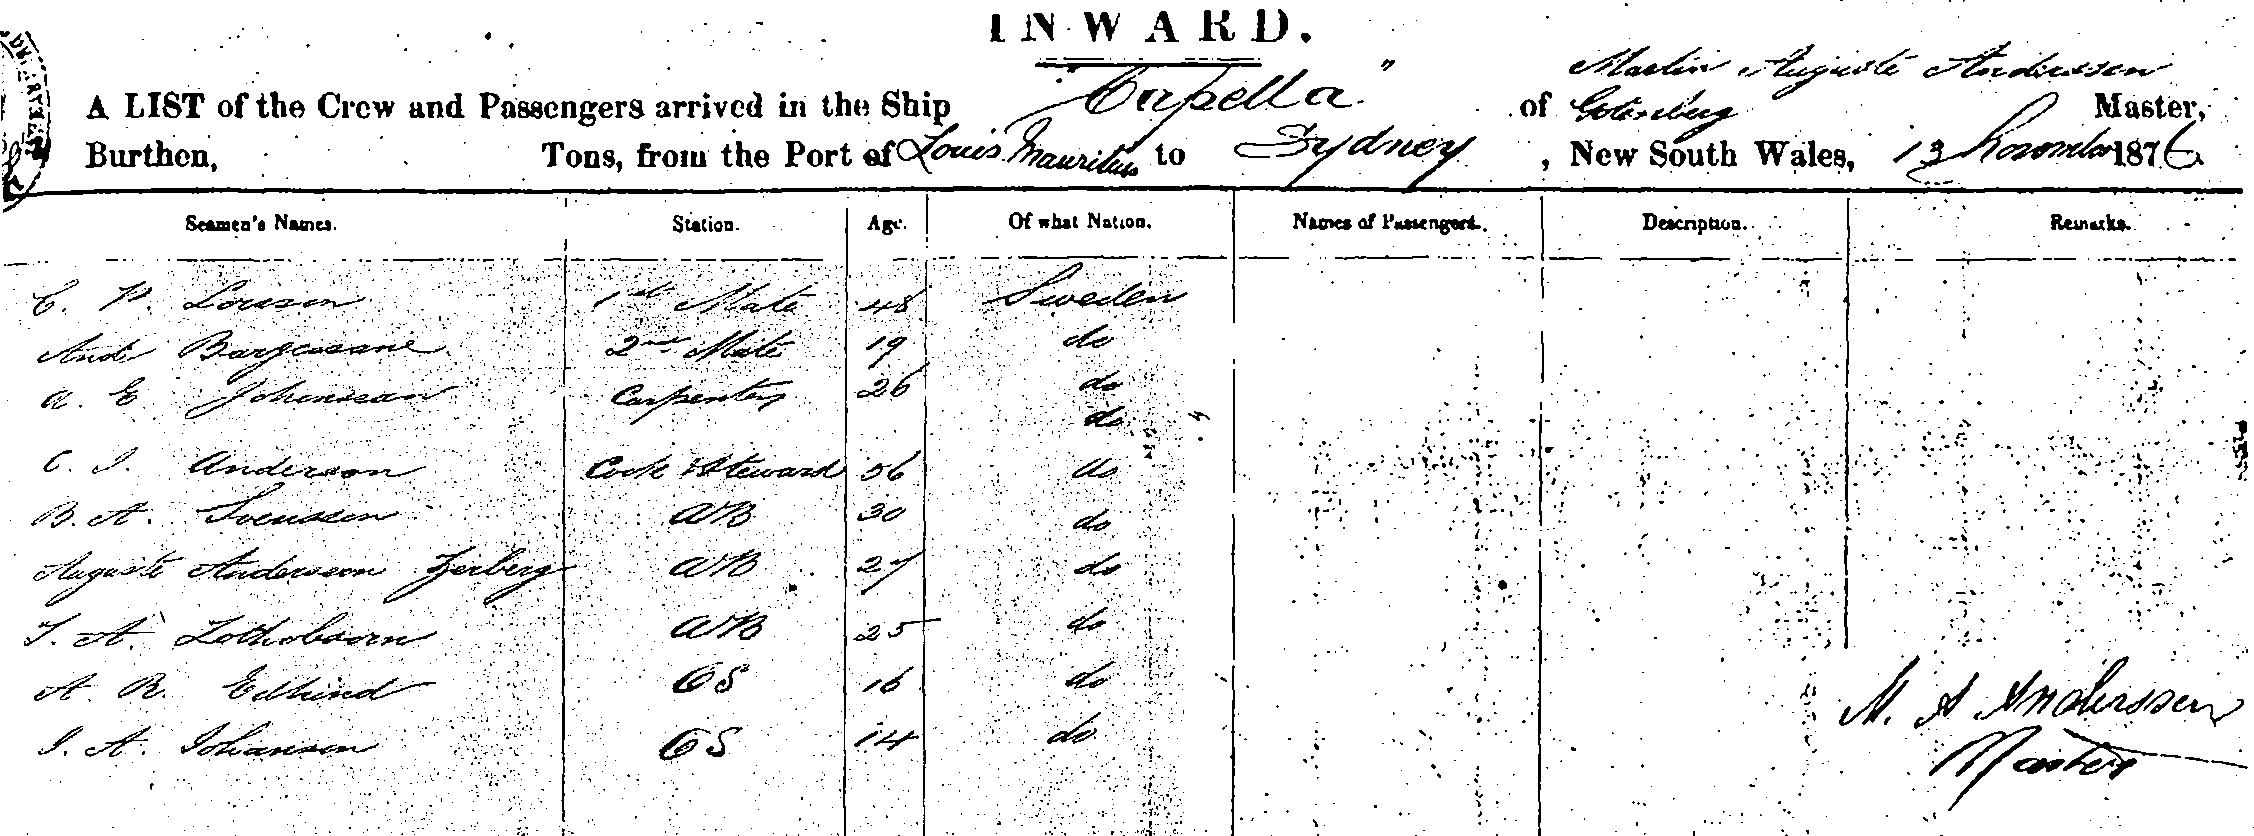 INWARD.
Martin Auguste Anderssen
A LIST of the Crew and Passengers arrived in the Ship "Capella" of Gotenberg Master,
Burthen, Tons, from the Port of Louis Mauritius to Sydney, New South Wales, 13 November 1876
Seamen's Names. Station. Age. Of what Nation. Names of Passengers. Description. Remarks.
C. P. 1st Mate 48 Sweden
And. 2nd Mate 19 do
A. E Johansson Carpenter 26 do
do
C. J. Anderson Cook & Steward 56 do
B. A. Svenssen AB 30 do
Auguste Andersson Zerberg AB 27 do
A. AB 25 do
A. R. Edlund OS 16 do
J. A. Johanson OS 14 do
M. A Anderssen
Master